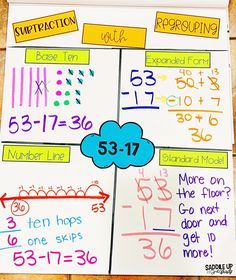 SUBTRACTION with REGROUPING
Base Ten
53-17=36
Expanded Form
40 + 13
53 50 + 3
-17 10 + 7
30 + 6
36
53-17
Number Line
36 53
3 ten hops
6 one skips
Standard Model
4 13
53
-17
36
More on
the floor?
Go next
door and
get 10
more!
SADDLE UP